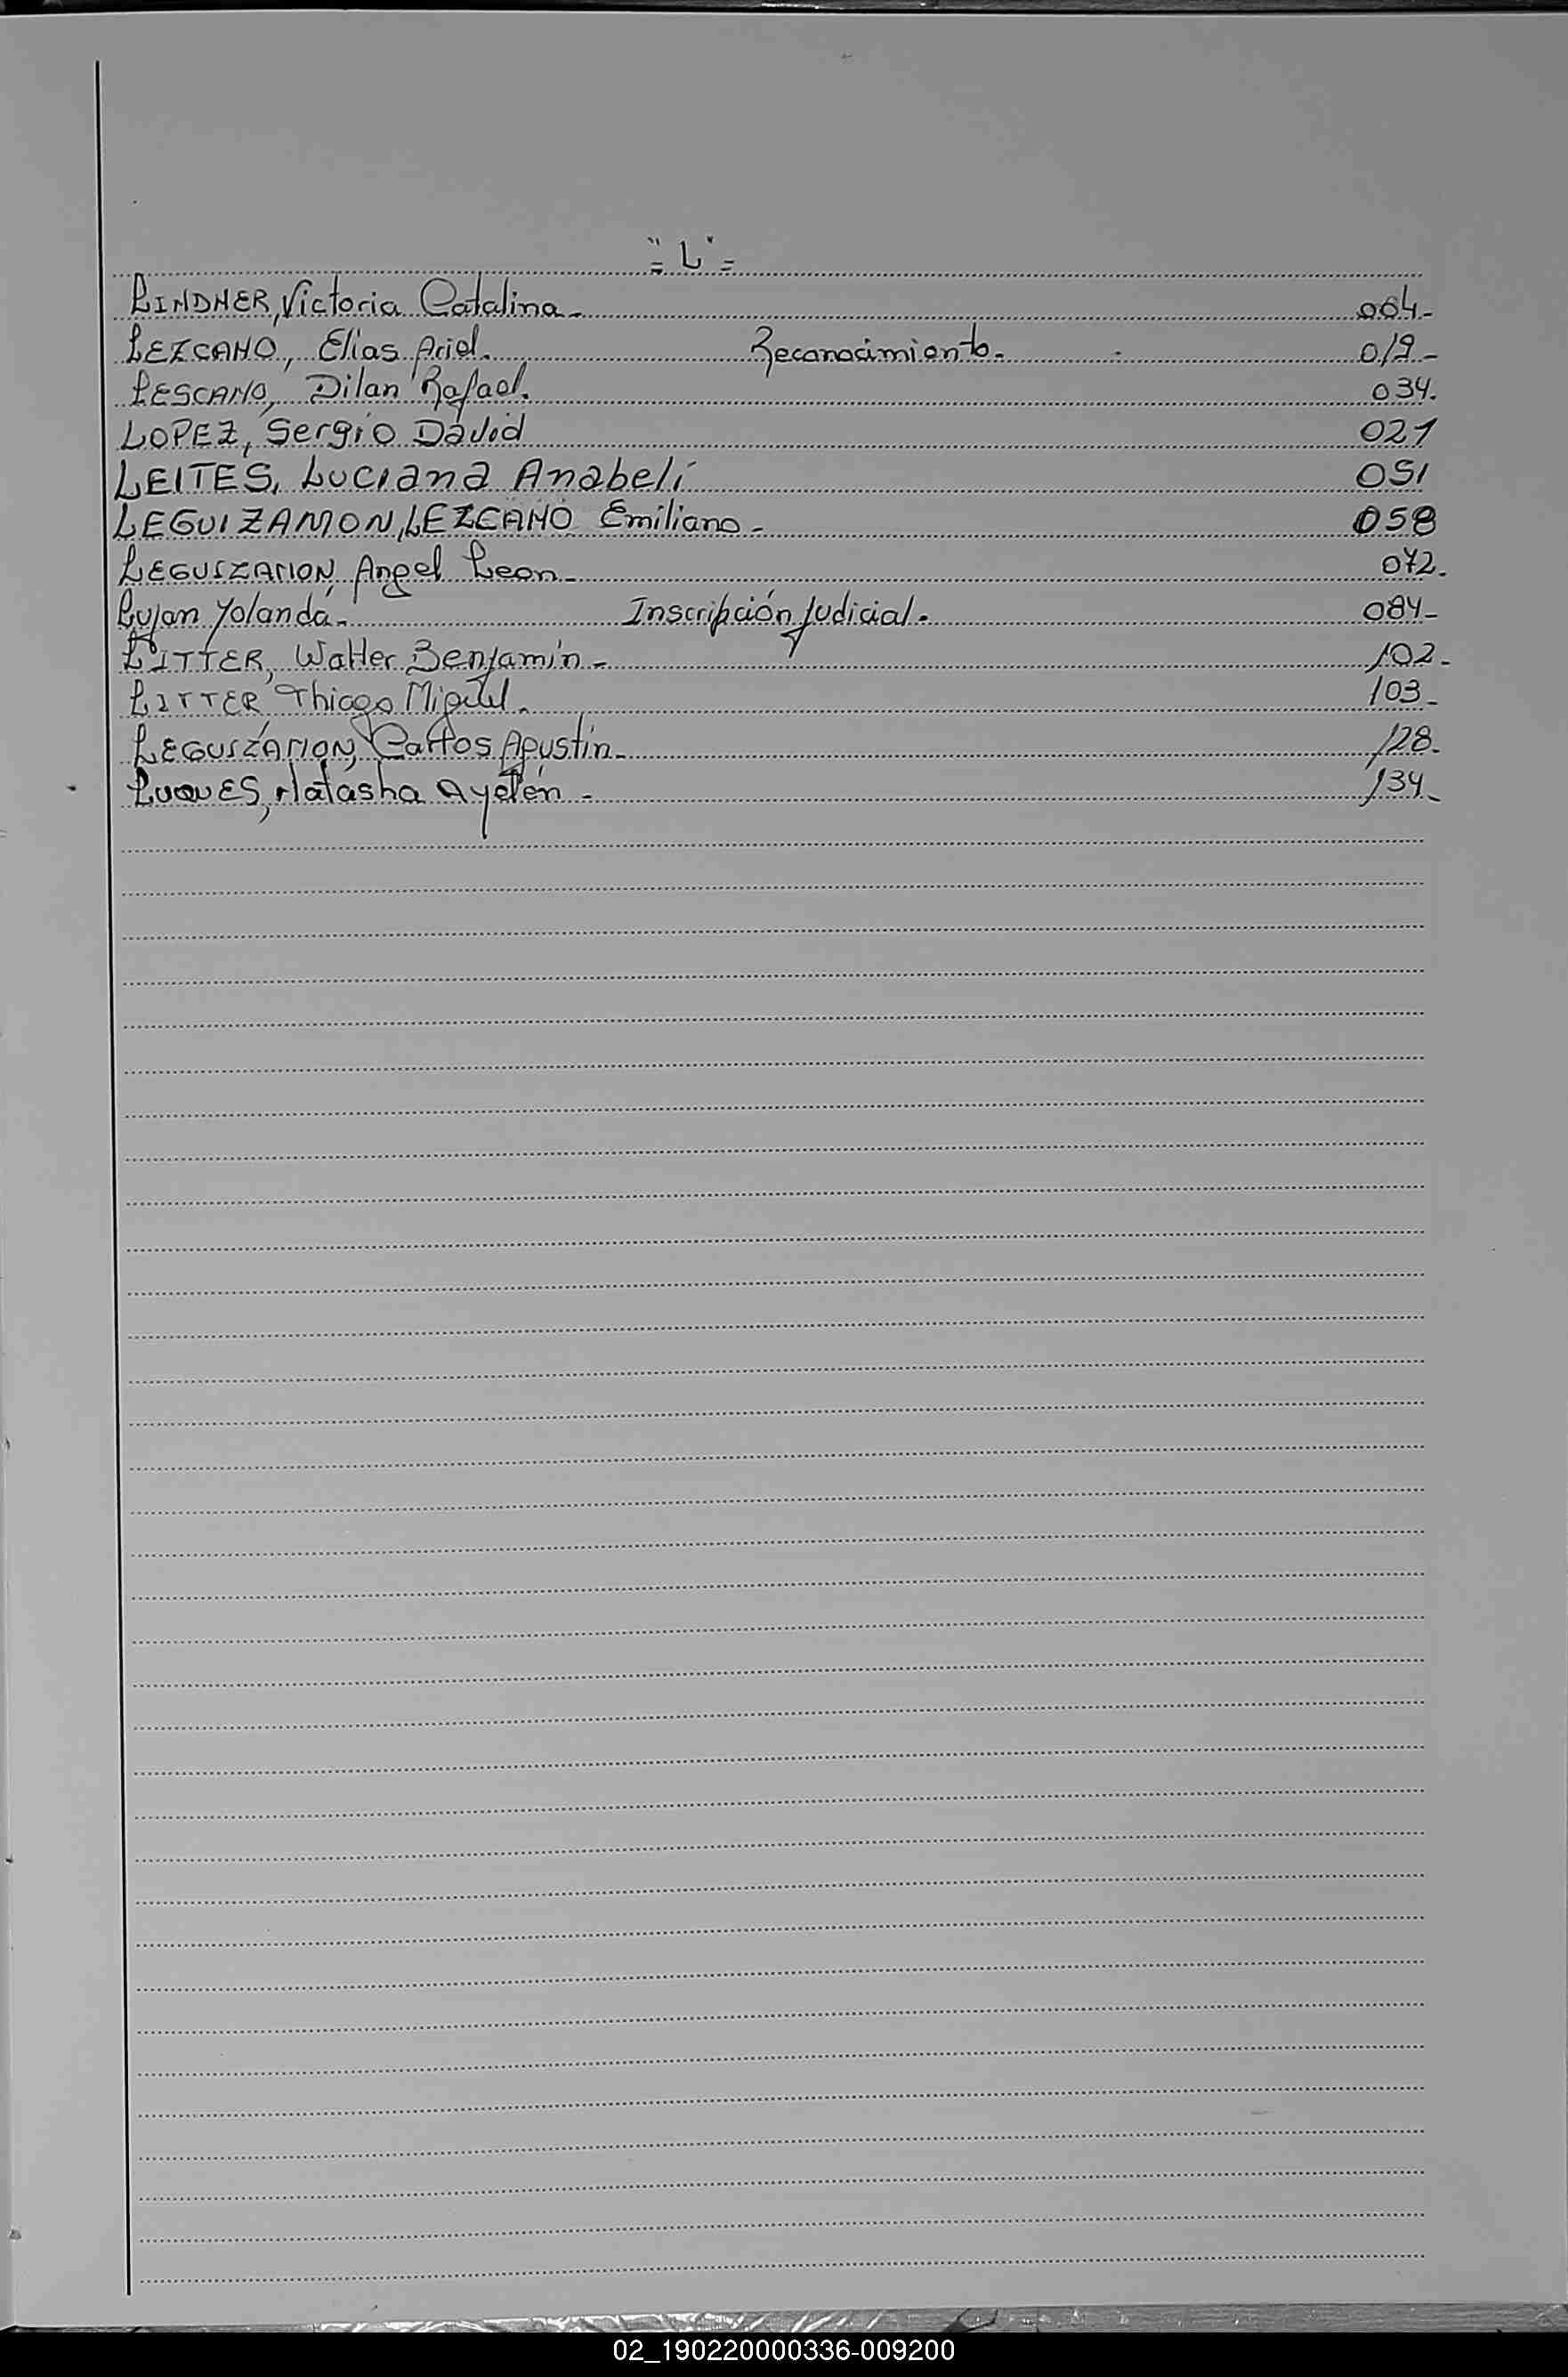 ="L"=
LINDNER, Victoria Catalina.- 004.-
LEZCANO, Elias Ariel. Reconocimiento.- 019.-
LESCANO, Dilan Rafael. 034.
LOPEZ, Sergio David 021
LEITES, Luciana Anabeli 051
LEGUIZAMON, LEZCANO Emiliano.- 058
LEGUIZAMON, Angel Leon.- 072.
Lujan Yolanda.- Inscripción Judicial.- 084.-
LITTER, Walter Benjamin.- 102.-
LITTER, Thiago Miguel. 103.-
LEGUIZAMON, Carlos Agustín.- 128.-
LUQUES, Natasha Ayelén.- 134.-
02_190220000336-009200